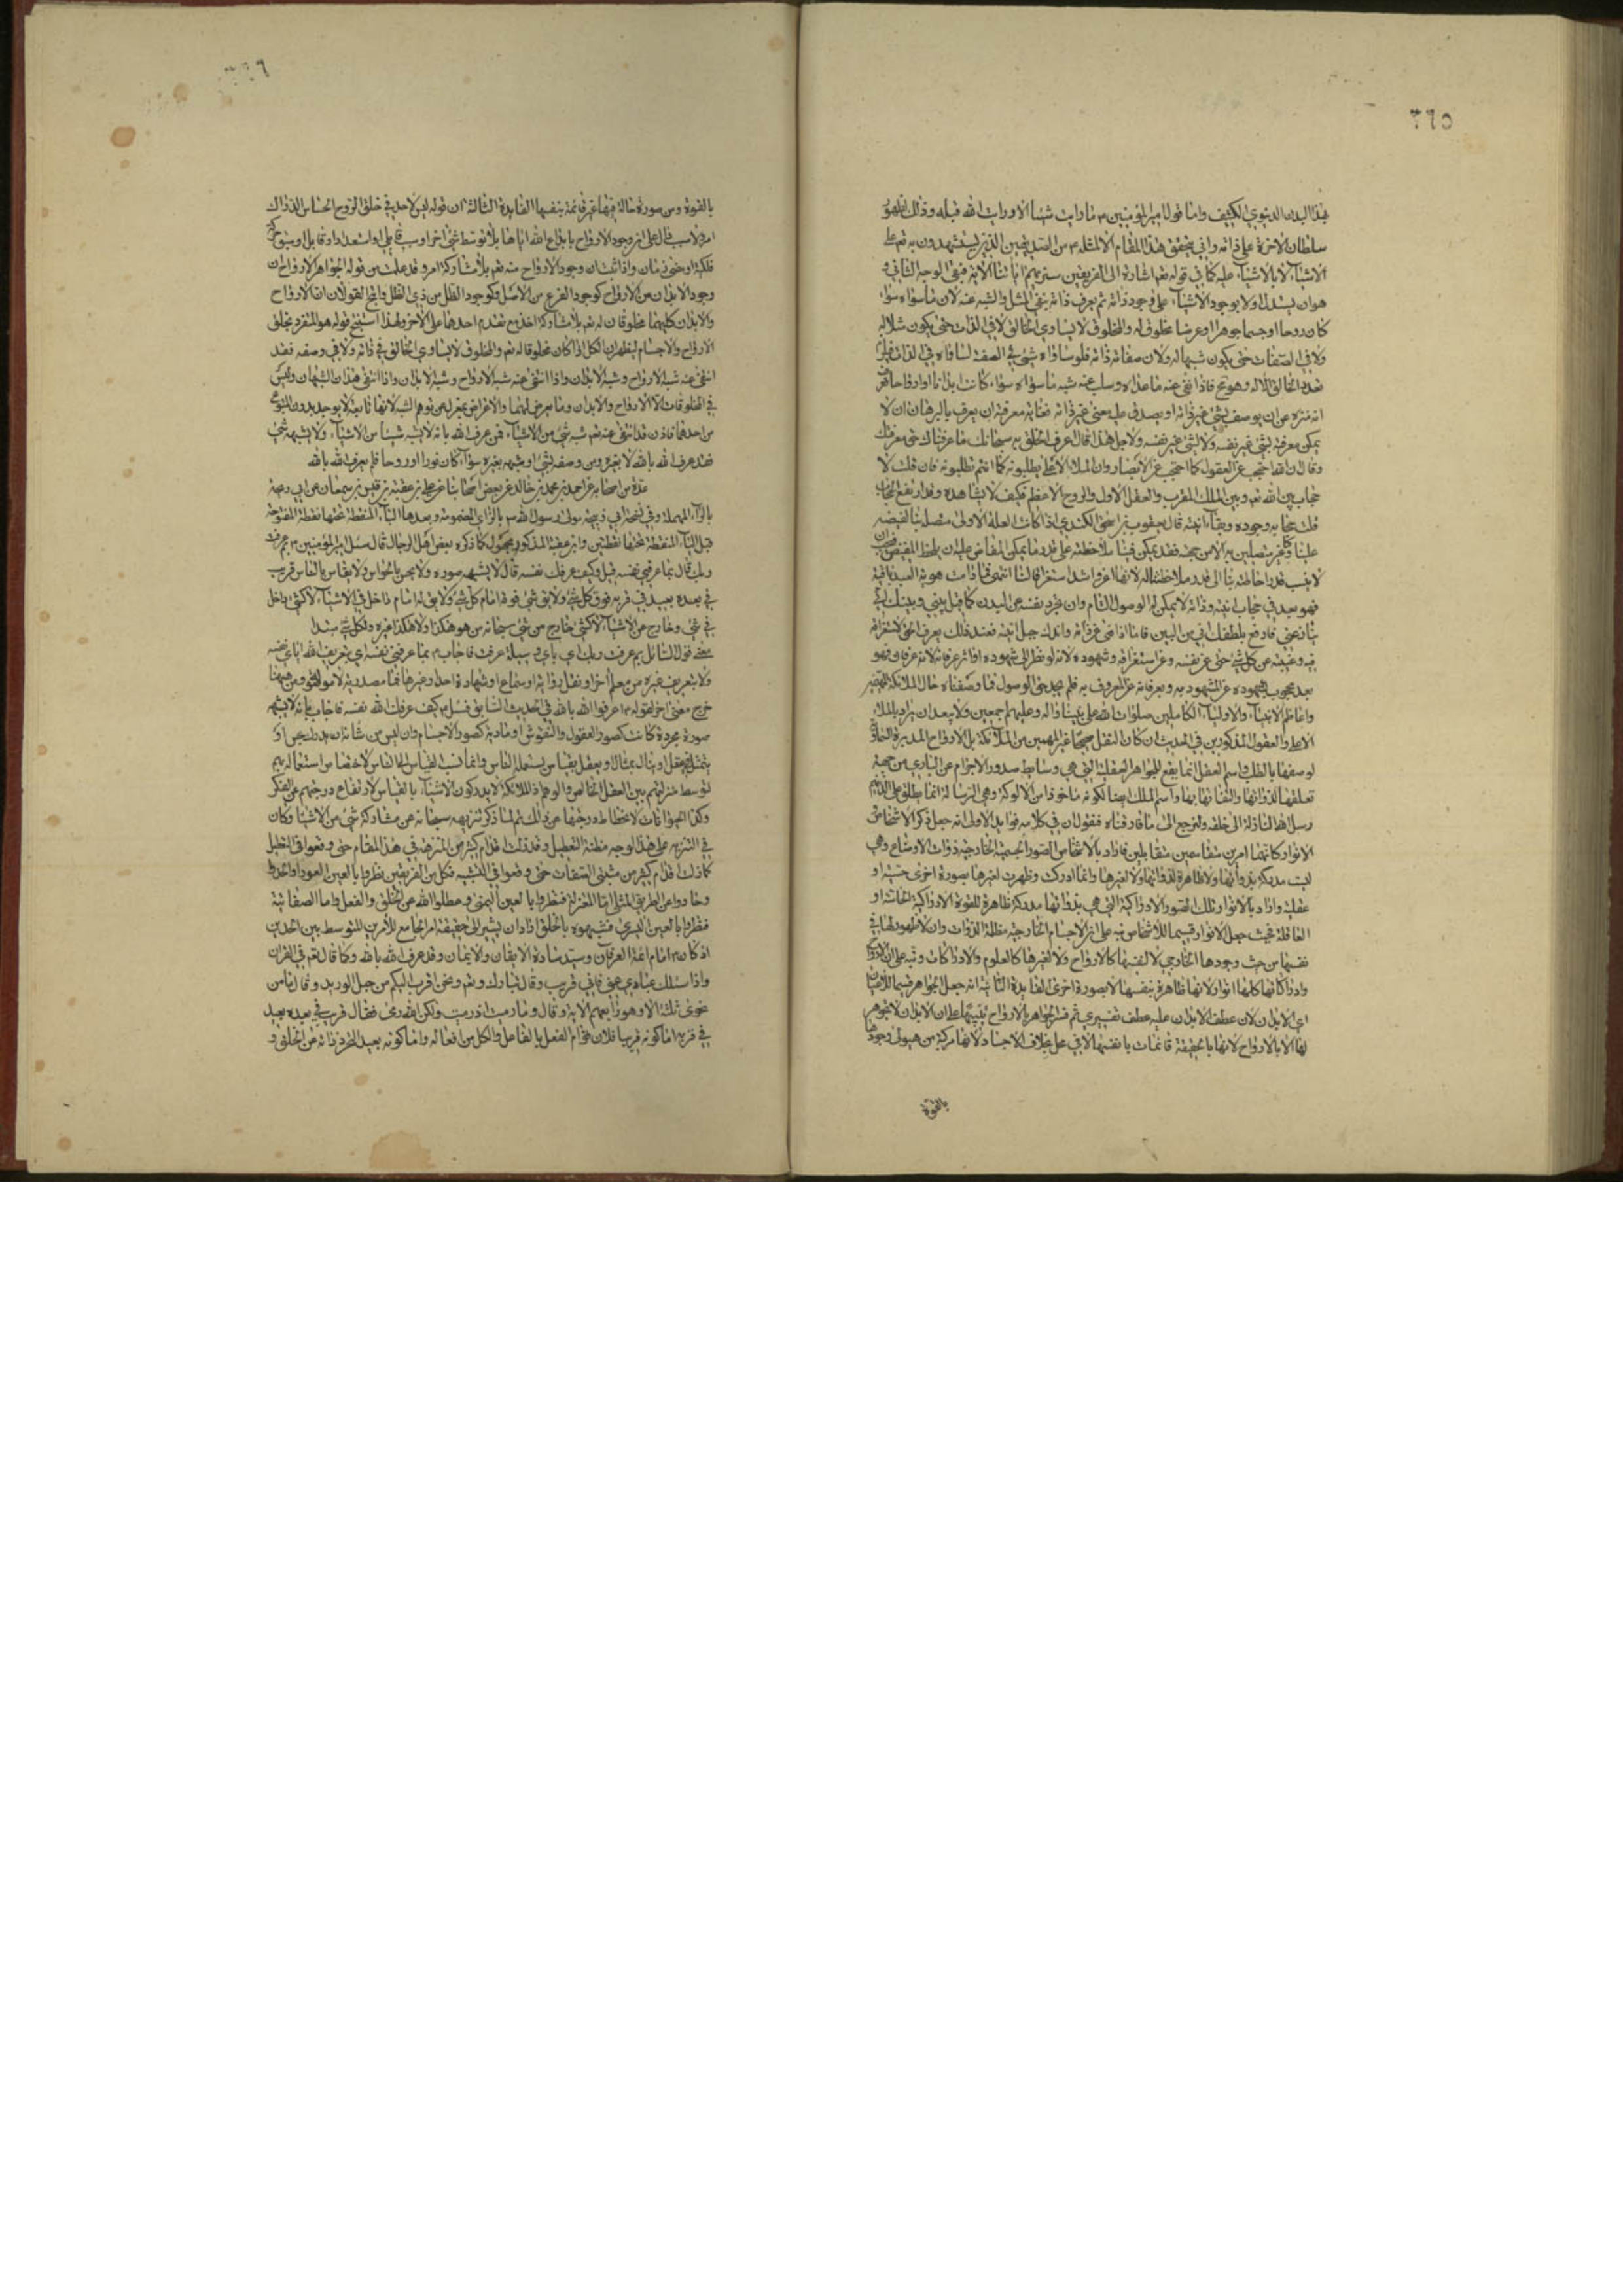 ٣٦٥
بهذا البدن الدنيوي الكثيف واما قول امير المؤمنين م ما رايت شيئا الا ورايت الله قبله وذلك لظهور
سلطان الاخرة على ذاته واني يتحقق هذا المقام الا لمثله م من الصديقين الذين يستشهدون به تعم على
الاشياء لا بالاشياء عليه كما في قوله تعم اشارة الى الفريقين سنريهم اياتنا الاية فبقى الوجه الثاني و
هو ان يستدل اولا بوجود الاشياء على وجود ذاته ثم يعرف ذاته بنفي المثل والشبه عنه لان ما سواه سواء
كان روحا او جسما جوهرا او عرضا مخلوق له والمخلوق لا يساوي الخالق لا في الذات حتى يكون مثلا له
ولا في الصفات حتى يكون شبيها له ولان صفاته ذاته فلو ساواه شئ في الصفة لساواه في الذات
تعدد الخالق الاله وهو مح فاذا نفى عنه ما عداه وسلب عنه شبه ما سواه سواء كانت ابدانا او ارواحا
انه منزه عن ان يوصف بشئ غير ذاته او يصدق عليه معنى غير ذاته فغاية معرفته ان يعرف بالبرهان ان لا
يمكن معرفته بشئ غير نفسه ولا لشئ غير نفسه ولاجل هذا قال اعرف الخلق به سبحانك ما عرفناك حق معرفتك
وقال ان الله احتجب عن العقول كما احتجب عن الابصار وان الملأ الاعلى يطلبونه كما انتم تطلبونه فان قلت لا
حجاب بين الله تعم وبين الملك المقرب والعقل الاول والروح الاعظم فكيف لا يشاهده وقد ارتفع الحجاب
قلت حجابه وجوده وبقاء انيته قال يعقوب بن اسحق الكندي اذا كانت العلة الاولى متصلة بنا لفيضه
علينا وكنا غير متصلين به الا من جهته فقد يمكن فينا ملاحظته على قدر ما يمكن المفاض عليه ان يلحظ المفيض فيجب ان
لا ينسب قدر احاطته بنا الى قدر ملاحظتنا له لانها اغزر واشد استغراقا لنا انتهى فما دامت هوية العبد باقية
فهو بعد في حجاب انيته وذاته لا يمكن له الوصول التام وان تجرد نفسه عن البدن كما قيل بيني وبينك اني
ينازعني فارفع بلطفك اني من البين فاما اذا فنى عن ذاته واندك جبل انيته فعند ذلك يعرف الحق لاستغراقه
فيه وغيبته عن كل شئ حتى عن نفسه وعن استغراقه وشهوده لانه لو نظر الى شهوده او الى عرفانه لانه عرفان فهو
بعد محجوب بشهوده عن المشهود به وبعرفانه عن المعروف به فلم يصح حق الوصول فما وصفناه حال الملائكة
واعاظم الانبياء والاولياء الكاملين صلوات الله على نبينا واله وعليهم اجمعين ولا يبعد ان يراد بالملاء
الاعلى والعقول المذكورين في الحديث ان كان النقل صحيحا غير المهيمين من الملائكة بل الارواح المدبرة
لوصفها بالطلب واسم العقل انما يقع للجواهر العقلية التي هي وسايط صدور الاجرام عن الباري من جهة
تعلقها لذواتها والتفاتها بها واسم الملك ايضا لكونه ماخوذا من الالوكة وهي الرسالة انما يطلق على الذين هم
رسل الله النازلة الى خلقه ولنرجع الى ما فارقناه فنقول ان في كلامه فوايد الاولى انه جعل ذكر الاشخاص
الانوار كانهما امرين متقاسمين متقابلين فاراد بالاشخاص الصور الجسمية الخارجية ذوات الاوضاع وهي
ليست مدركة بذواتها ولا ظاهرة لذواتها ولا لغيرها وانما ادركت وظهرت لغيرها بصورة اخرى حسية او
عقلية واراد بالانوار تلك الصور الادراكية التي هي بذواتها مدركة ظاهرة للقوة الادراكية الحاسة او
العاقلة فحيث جعل الانوار قسيما للاشخاص نبه على ان الاجسام الخارجية مظلمة الذوات وان لا ظهور لها في
نفسها من حيث وجودها الخارجي لا لنفسها كالارواح ولا لغيرها كالعلوم والادراكات ونبه على ان الارواح
وادراكاتها كلها انوار لانها ظاهرة بنفسها لا بصورة اخرى الفايدة الثانية انه جعل الجواهر قسيما للاعيان
اي الابدان لان عطف الابدان عليه عطف تفسيري ثم فسر الجواهر بالارواح تنبيها على ان الابدان لا جوهر
لها الا بالارواح لانها بالحقيقة قائمات بانفسها لا في محل بخلاف الاجساد لانها مركبة من هيولى وجودها
بالقوة
٣٦٦
بالقوة ومن صورة حالة فيها غير قائمة بنفسها الفايدة الثالثة ان قوله ليس لاحد في خلق الروح الحساس الدراك
امر ولا سبب دال على ان وجود الارواح بابداع الله اياها بلا توسط شئ اخر او سبب قابلي او استعداد او قابل او
فلكية او حتى زمان واذا ثبت ان وجود الارواح منه تعم بلا مشاركة امر وقد علمت من قوله الجواهر الارواح ان
وجود الابدان من الارواح كوجود الفرع من الاصل وكوجود الظل من ذي الظل واتضح القول ان الارواح
والابدان كليهما مخلوقان له تعم بلا مشاركة اخر مع تقدم احدهما على الاخر ولهذا استنتج قوله هو المتفرد بخلق
الارواح والاجسام ليظهر ان الكل اذا كان مخلوقا له تعم والمخلوق لا يساوي الخالق في ذاته ولا في وصفه فقد
انتفى عنه شبه الارواح وشبه الابدان واذا انتفى عنه شبه الارواح وشبه الابدان واذا انتفى هذان الشبهان وليس
في المخلوقات الا الارواح والابدان وما يعرض لهما والاعراض بمعزل عن توهم الشبه لانها تابعة لا يوجد بدون المتبوع
من احدهما فاذن قد انتفى عنه تعم شبه شئ من الاشياء فمن عرف الله بانه لا يشبه شيئا من الاشياء ولا يشبهه شئ
فقد عرف الله بالله لا بغيره ومن وصفه بشئ او شبهه بغيره سواء كان نورا او روحا فلم يعرف الله بالله
عدة من اصحابنا عن احمد بن محمد بن خالد عن بعض اصحابنا عن علي بن عقبة بن قيس بن سمعان بن ابي ربيحة
بالراء المهملة وفي نسخة ابي ذبيحة مولى رسول الله ص بالزاي المضمومة وبعدها الباء المنقطة تحتها نقطة المفتوحة
قبل الياء المنقطة تحتها نقطتين وابن عقبة المذكور مجهول كما ذكره بعض اهل الرجال قال سئل امير المؤمنين م بم عرفت
ربك قال بما عرفني نفسه قيل وكيف عرفك نفسه قال لا يشبهه صورة ولا يحس بالحواس ولا يقاس بالناس قريب
في بعده بعيد في قربه فوق كل شئ ولا يق شئ فوقه امام كل شئ ولا يق له امام داخل في الاشياء لا كشئ داخل
في شئ وخارج من الاشياء لا كشئ خارج من شئ سبحانه من هو هكذا ولا هكذا غيره ولكل شئ مبتدا
معنى قول السائل بم عرفت ربك اي باي وسيلة عرفت فاجاب م بما عرفني نفسه اي بتعريف الله اياي نفسه
ولا بتعريف غيره من معلم اخر او نقل رواية او سماع او شهادة احد او غيرها فما مصدرية لا موصولة ومن ههنا
خرج معنى اخر لقوله م اعرفوا الله بالله في الحديث السابق فسئل م كيف عرفك الله نفسه فاجاب بانه لا يشبهه
صورة مجردة كانت كصور العقول والنفوس او مادية كصور الاجسام وان ليس من شانه ان يدرك بحس او
يتمثل بعقل او ينال بمثال او يعقل بقياس يستعمله الناس وانما نسب القياس الى الناس لاختصاص استعماله بهم
لتوسط منزلتهم بين العقل الخالص والوهم اذ الملائكة لا يدركون الاشياء بالقياس لارتفاع درجتهم عن الفكر
وكذا الحيوانات لانحطاط درجتها عن ذلك ثم لما ذكر تنزيهه سبحانه عن مشاركة شئ من الاشياء وكان
في التنزيه على هذا الوجه مظنة التعطيل وقد زلت اقدام كثير من المنزهة في هذا المقام حتى وقعوا في التعطيل
كما زلت اقدام كثير من مثبتي الصفات حتى وقعوا في التشبيه فكل من الفريقين نظروا بالعين العوراء
وحادوا عن الطريق المثلى اما المعتزلة فنظروا بالعين اليمنى وعطلوا الله عن الخلق والفعل واما الصفاتية
فنظروا بالعين اليسرى فشبهوه بالخلق اراد ان يشير الى حقيقة امر الجامع للامرين المتوسط بين الحدين
اذ كان م امام ائمة العرفان وسيد سادة الايقان والايمان وقد عرف الله بالله وكما قال تعم في القران
واذا سئلك عبادي عني فاني قريب وقال تبارك وتعم ونحن اقرب اليكم من حبل الوريد وقال ما من
نجوى ثلثة الا وهو رابعهم الاية وقال وما رميت اذ رميت ولكن الله رمى فقال قريب في بعده بعيد
في قربه اما كونه قريبا فلان قوام الفعل بالفاعل والكل من افعاله واما كونه بعيدا لتفرد ذاته عن الخلق و